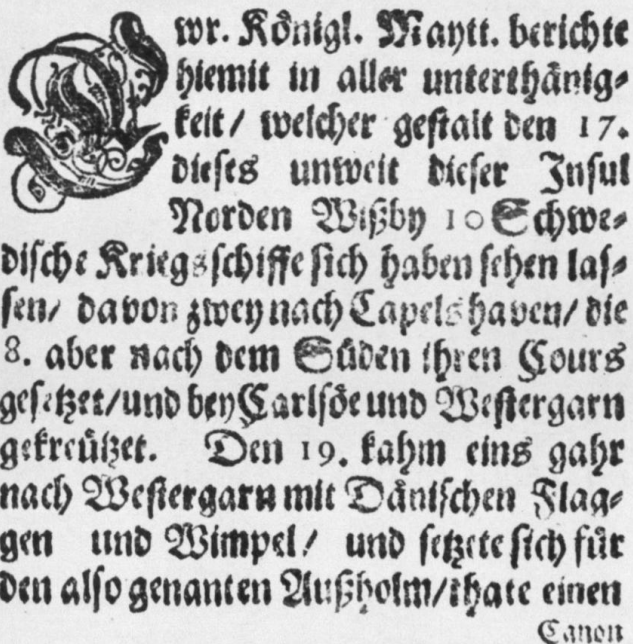 Ewr. Königl. Maytt. berichte
hiemit in aller unterthänig-
keit/ welcher gestalt den 17.
dieses unweit dieser Insul
Norden Wißby 10 Schwe-
dische Kriegsschiffe sich haben sehen las-
sen/ davon zwey nach Capelshaven/ die
8. aber nach dem Süden ihren Cours
gesetzet/ und bey Carlsöe und Westergarn
gekreützet. Den 19. kahm eins gahr
nach Westergarn mit Dänischen Flag-
gen und Wimpel/ und setzete sich für
den also genanten Außholm/ thate einen
Canon